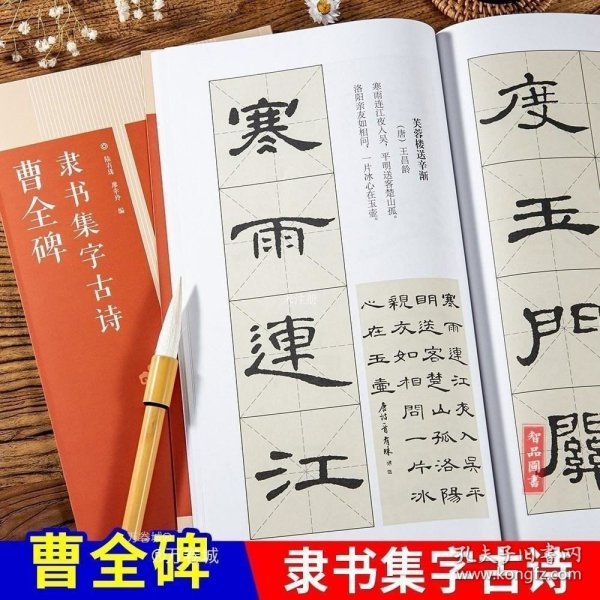 曹全碑
隶书集字古诗
陆有珠 廖幸玲 编
寒
雨
連
江
芙蓉楼送辛渐
（唐）王昌龄
寒雨连江夜入吴，平明送客楚山孤。
洛阳亲友如相问，一片冰心在玉壶。
寒雨連江夜入吴平
明送客楚山孤洛陽
親友如相問一片冰
心在玉壷
度
玉
門
關
智品圖書
曹全碑
隶书集字古诗
孔夫子旧书网
www.kongfz.com